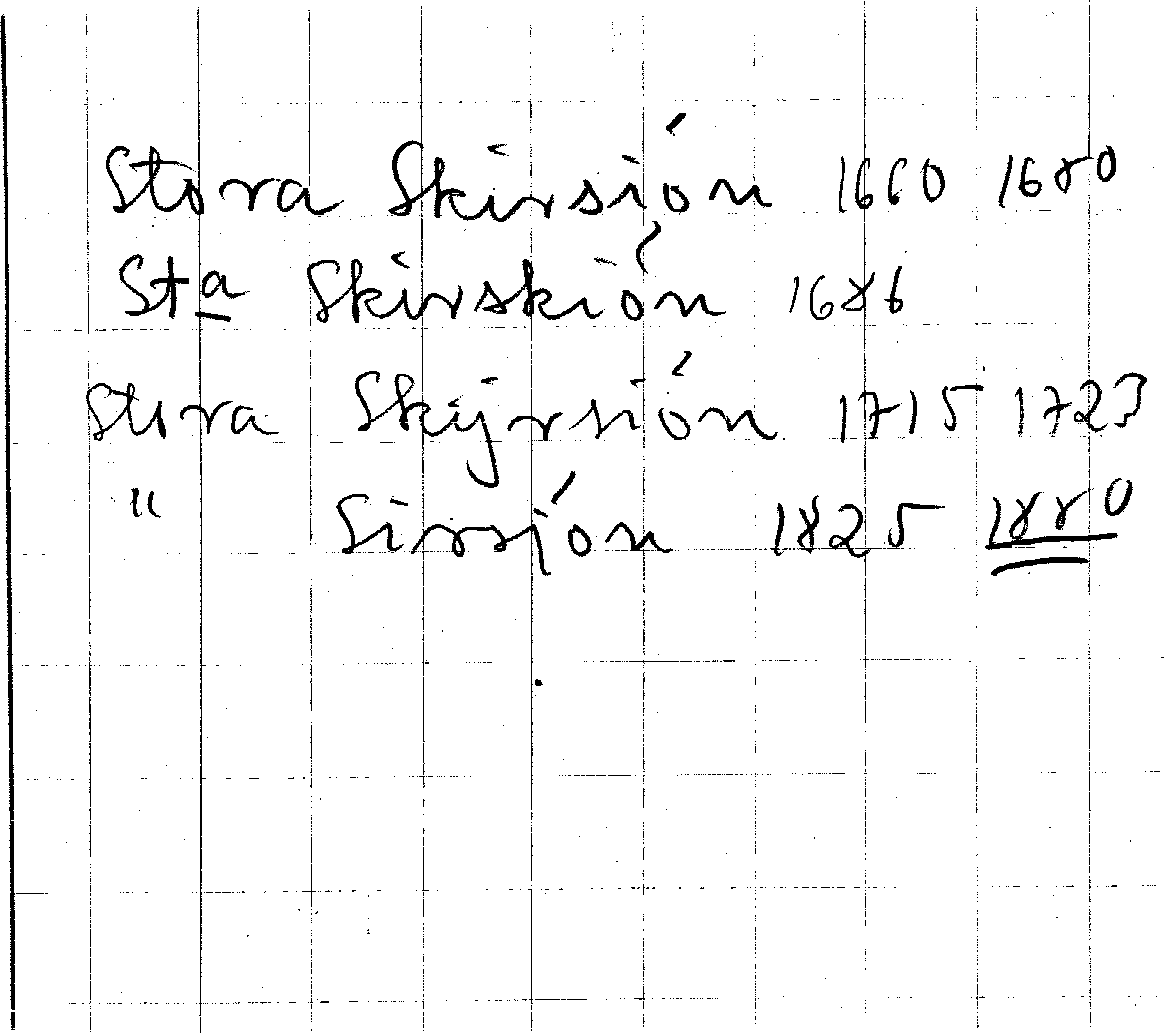 Stora Skirsión 1660 1680
Sta Skirskión 1686
Stora Skÿrsión 1715 1723
" Sirsjón 1825 1880